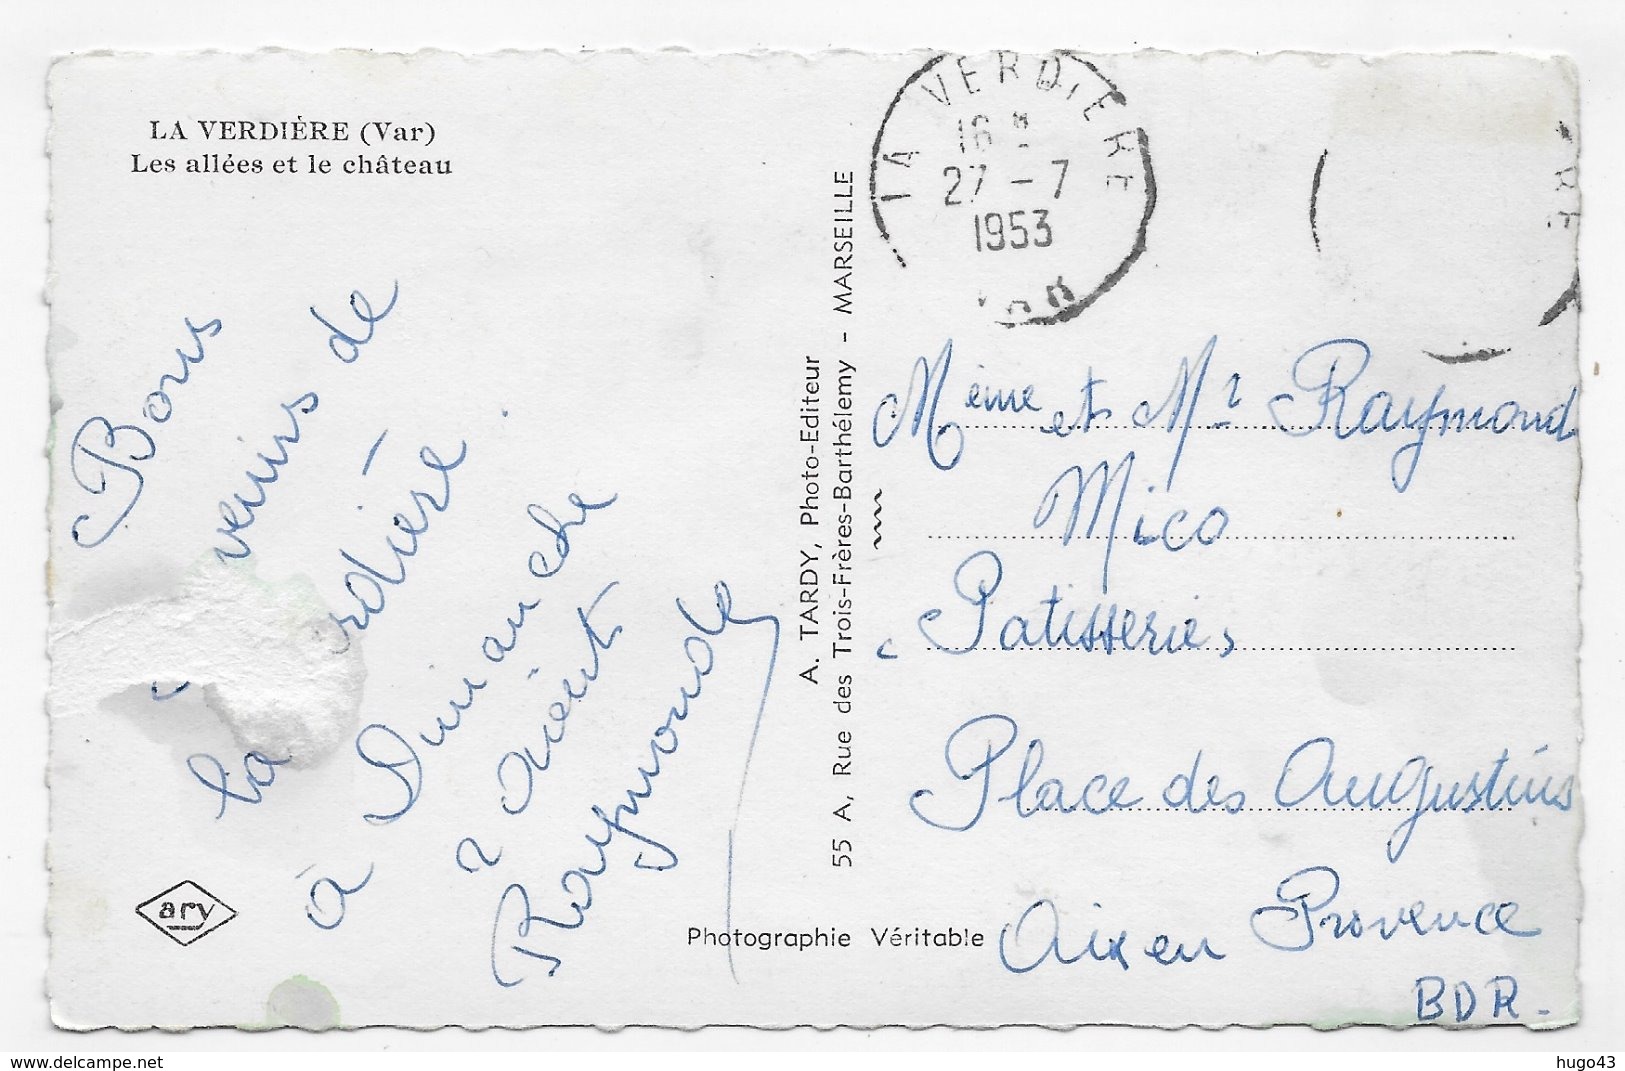 LA VERDIÈRE (Var)
Les allées et le château
Bons
venirs de
la rdière
à Dimanche
2 Août
Raymonde
ary
A. TARDY, Photo-Editeur
55 A, Rue des Trois-Frères-Barthélemy - MARSEILLE
Photographie Véritable
LA VERDIERE
16 H
27 - 7
1953
VAR
RE
Mème et Mr Raymond
Mico
Patisserie
Place des Augustins
Aix en Provence
BDR.
hugo43